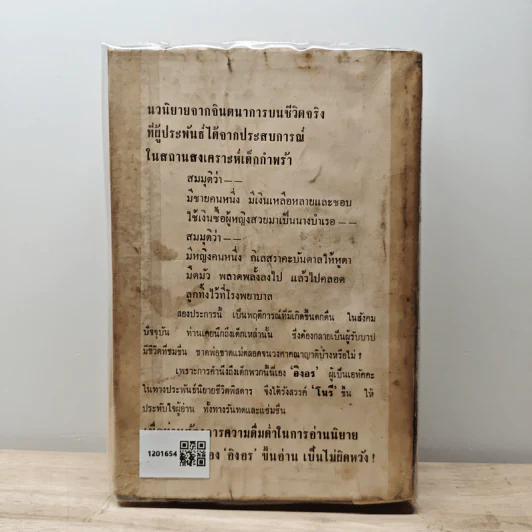 นวนิยายจากจินตนาการบนชีวิตจริง
ที่ผู้ประพันธ์ได้จากประสบการณ์
ในสถานสงเคราะห์เด็กกำพร้า
สมมุติว่า——
มีชายคนหนึ่ง มีเงินเหลือหลายและชอบ
ใช้เงินซื้อผู้หญิงสวยมาเป็นนางบำเรอ——
สมมุติว่า——
มีหญิงคนหนึ่ง กิเลสุราคะบันดาลให้หูตา
มืดมัว พลาดพลั้งลงไป แล้วไปคลอด
ลูกทิ้งไว้ที่โรงพยาบาล
สองประการนี้ เป็นพฤติการณ์ที่มีเกิดขึ้นดกดื่น ในสังคม
ปัจจุบัน ท่านเคยนึกถึงเด็กเหล่านั้น ซึ่งต้องกลายเป็นผู้รับบาป
มีชีวิตที่ขมขื่น ขาดพ่อขาดแม่ตลอดจนวงศาคณาญาติบ้างหรือไม่ ?
เพราะการคำนึงถึงเด็กพวกนี้นี่เอง ‘อิงอร’ ผู้เป็นเอทัคคะ
ในทางประพันธ์นิยายชีวิตพิสดาร จึงได้รังสรรค์ ‘โนรี’ ขึ้น ให้
ประทับใจผู้อ่าน ทั้งทางรันทดและแช่มชื่น
การความดื่มด่ำในการอ่านนิยาย
‘อิงอร’ ขึ้นอ่าน เป็นไม่ผิดหวัง !
1201654